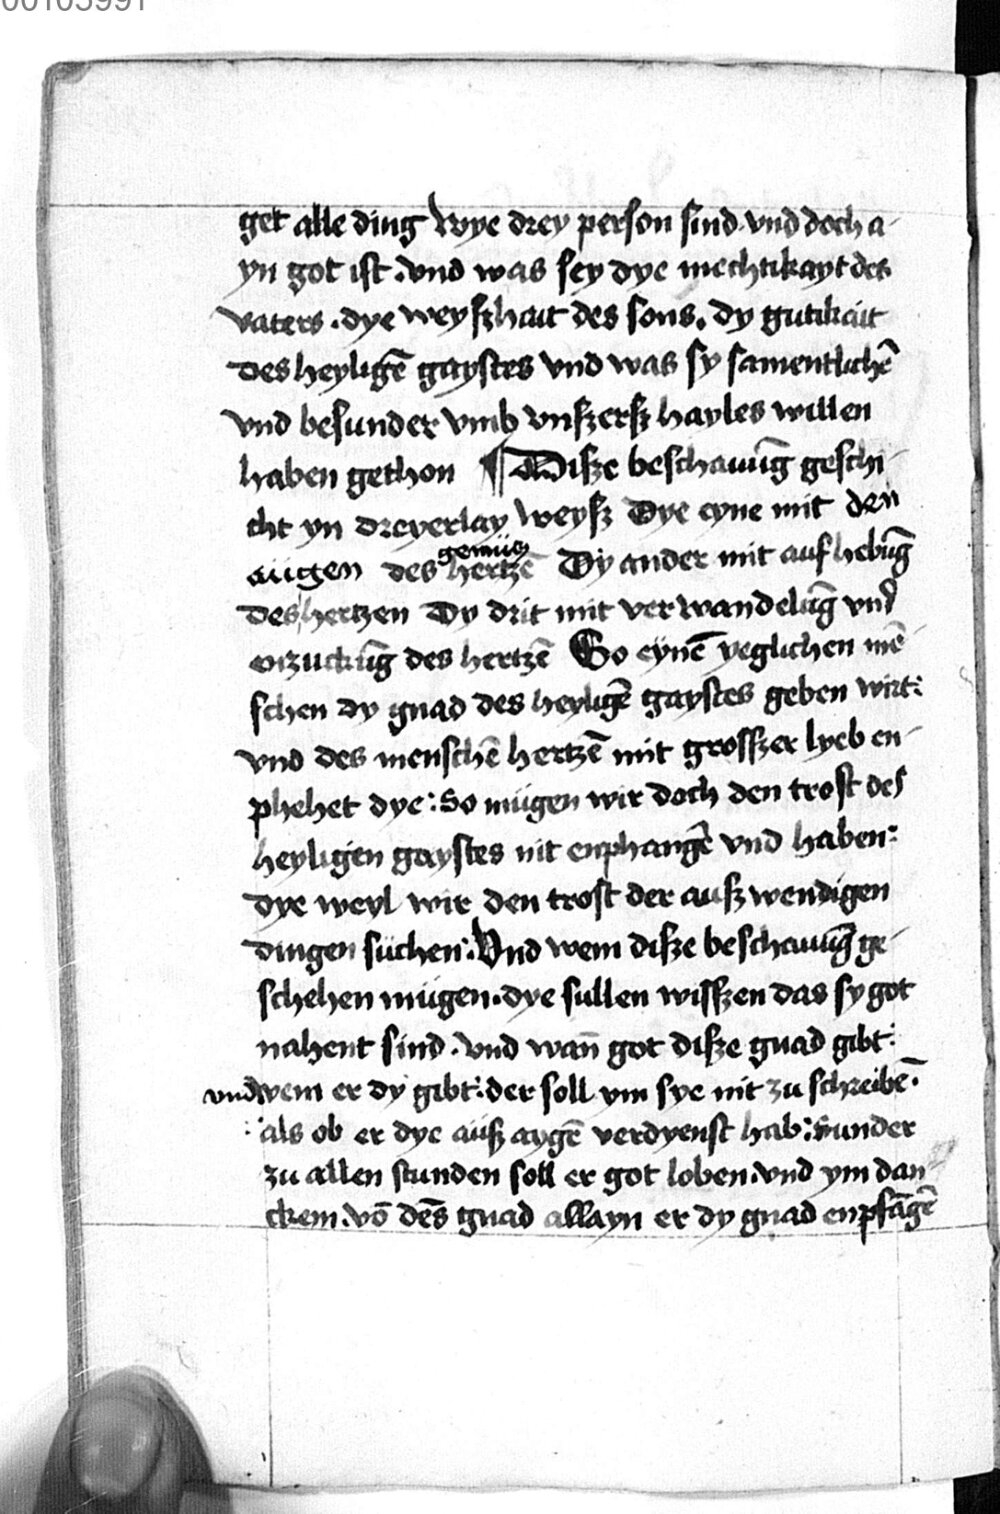 00103991
get alle ding Wye drey person sind vnd doch a-
yn got ist. Vnd was sey dye mechtikayt des
vaters. dye weyszhait des sons. dy gutikait
des heyligē gaystes vnd was sy samentlichē
vnd besunder vmb vnszersz hayles willen
haben gethon ¶ Disze beschauūg geschi-
cht yn dreyerlay weysz Dye eyne mit den
augen des hertzē gemüez Dy ander mit aufhebūg
des hertzen Dy drit mit verwandelūg vnd
enzuckūg des hertzē So eynē yeglichen mē-
schen dy gnad des heyligē gaystes geben wirt:
vnd des menschē hertzē mit groszer lyeb en-
phehet dye: So mügen wir doch den trost des
heyligen gaystes nit enphangē vnd haben:
dye weyl wir den trost der auszwendigen
dingen süchen: Vnd wem disze beschauūg ge-
schehen mügen. dye sullen wisszen das sy got
nahent sind. vnd wan̄ got disze gnad gibt:
vnd wem er dy gibt: der soll ym sye nit zu schreibē.
als ob er dye ausz aygē verdyenst hab: sunder
zu allen stunden soll er got loben. vnd ym dan-
ckem. vō dēs gnad allayn er dy gnad enpfāgē